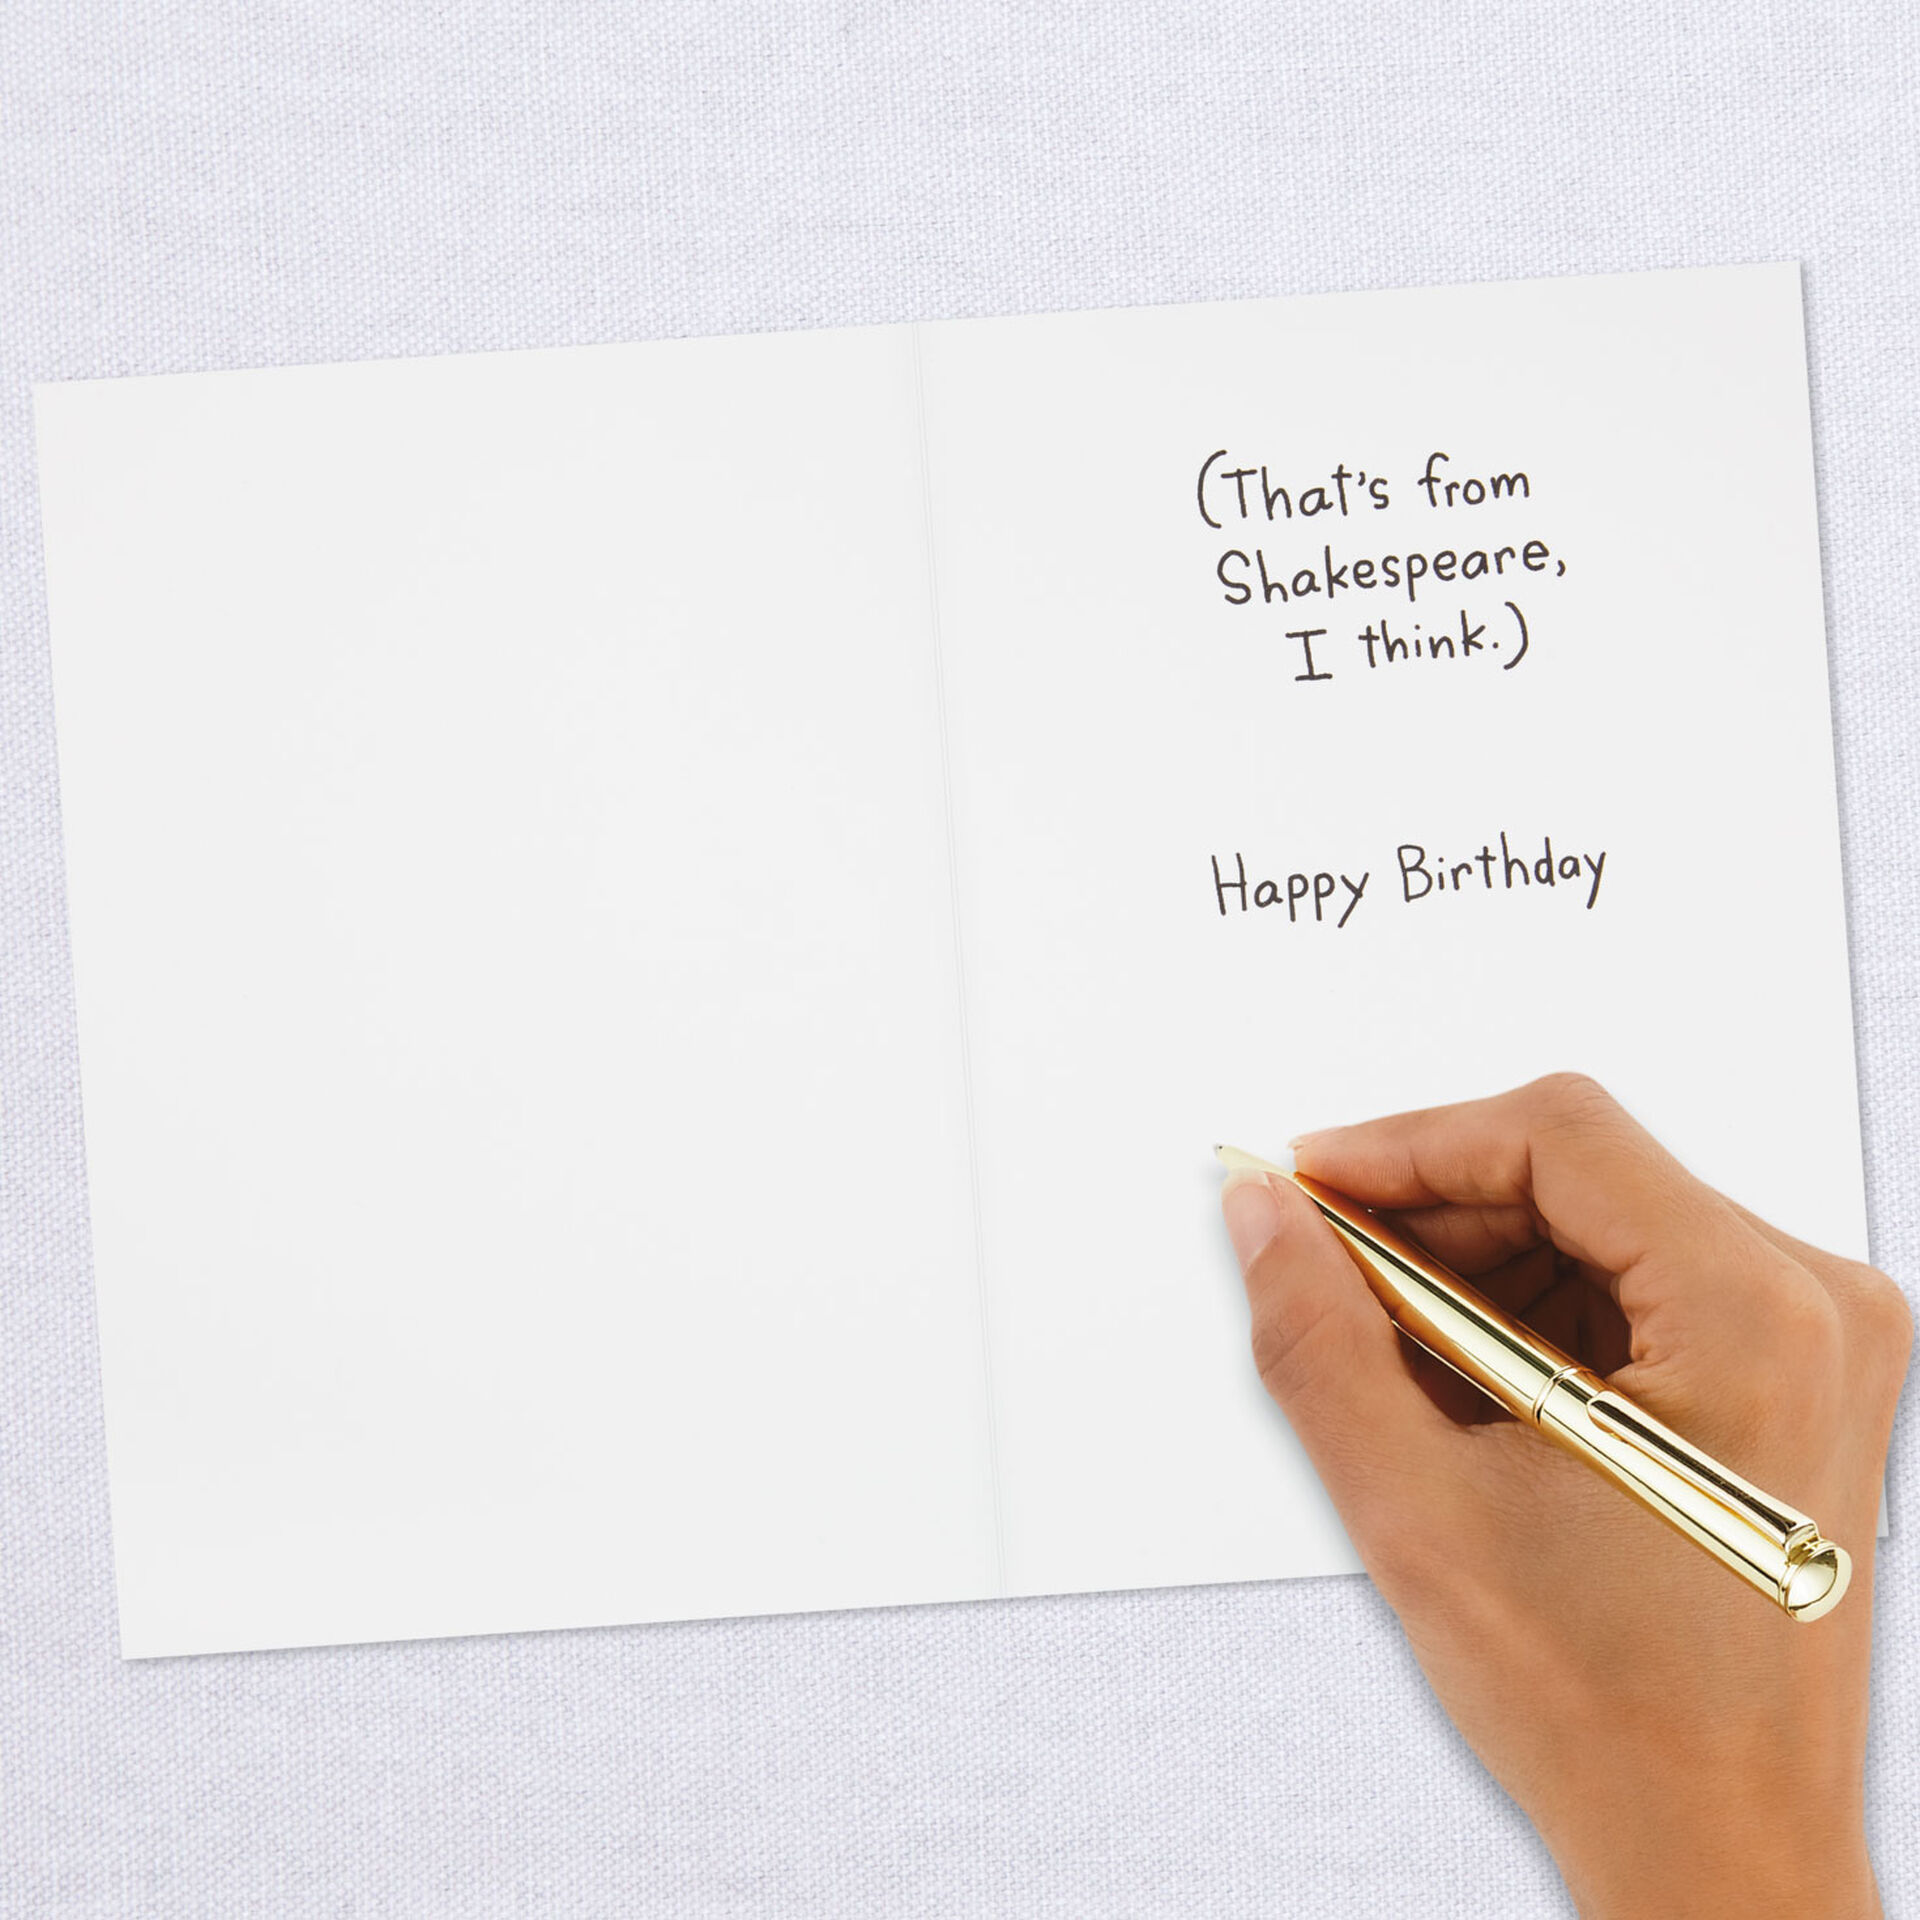 (That's from
Shakespeare,
I think.)
Happy Birthday